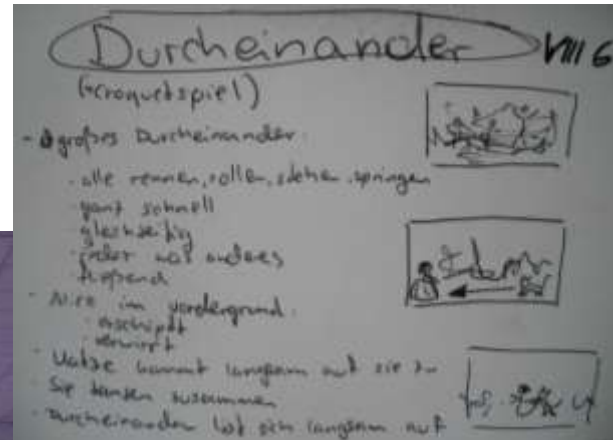 Durcheinander VIII 6
(Croquetspiel)
- großes Durcheinander
- alle rennen, rollen, stehen, springen
- ganz schnell
- gleichzeitig
- jeder was anderes
- im Vordergrund
- erschöpft
- verwirrt
- Katze kommt langsam auf sie zu
- Sie tanzen zusammen
- Durcheinander löst sich langsam auf